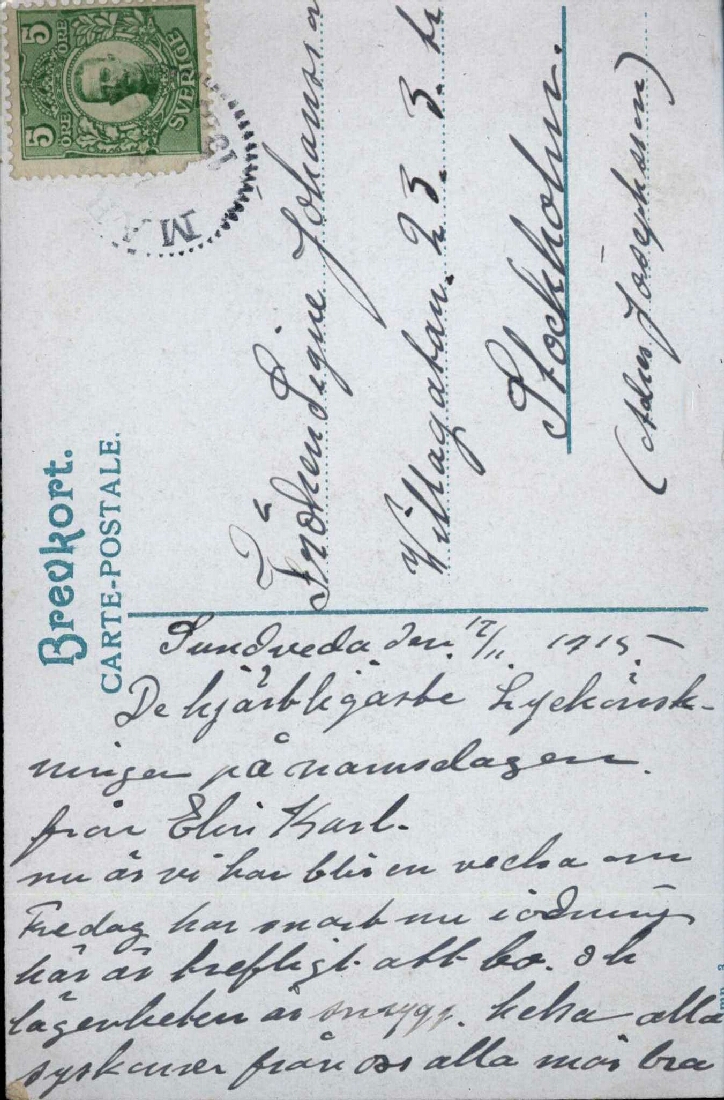 5 ÖRE
SVERIGE
5 ÖRE
Brevkort.
CARTE-POSTALE.
Fröken Signe Johansson
Villagatan. 23. 3. tr
Stockholm.
Josephson)
Sundveda den. 17/11. 1915.-
De hjärtligaste Lyckönsk-
ningar på namsdagen.
från Elin Karl.
nu är vi har blir en vecka om
Fredag har snart nu i ordning
här är trefligt att bo. och
lägenheten är snygg. helsa alla
syskoner från oss alla mår bra